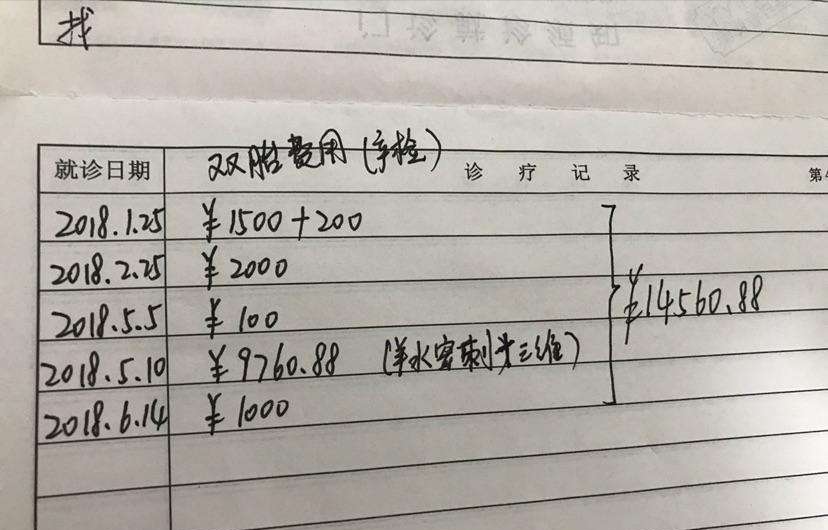 找
就诊日期 双胎费用(产检) 诊疗记录 第
2018.1.25 ¥1500+200
2018.2.25 ¥2000
2018.5.5 ¥100
2018.5.10 ¥9760.88 (羊水穿刺 三维)
2018.6.14 ¥1000
¥14560.88